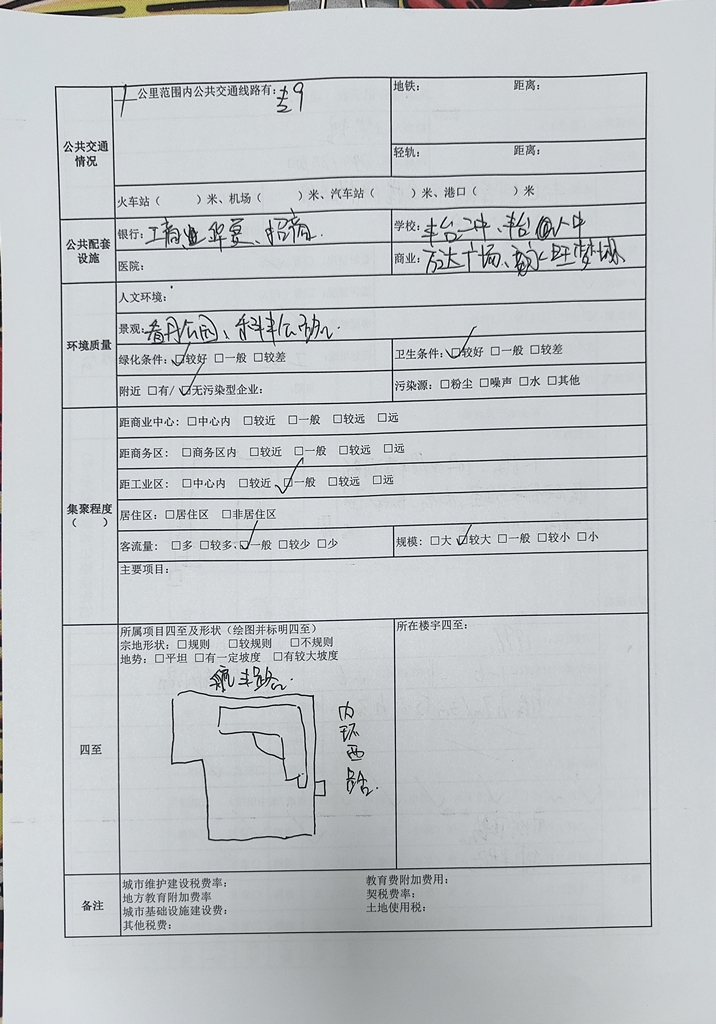 公共交通情况
1公里范围内公共交通线路有:专9
地铁: 距离:
轻轨: 距离:
火车站（ ）米、机场（ ）米、汽车站（ ）米、港口（ ）米
公共配套设施
银行:工商 华夏、招商.
学校:丰台二中、丰台 八中
医院:
商业:万达广场、
环境质量
人文环境:
景观:看丹公园、科丰公园.
绿化条件: ☑较好 □一般 □较差
卫生条件: ☑较好 □一般 □较差
附近 □有/☑无污染型企业:
污染源: □粉尘 □噪声 □水 □其他
集聚程度（ ）
距商业中心: □中心内 □较近 □一般 □较远 □远
距商务区: □商务区内 □较近 □一般 □较远 □远
距工业区: □中心内 □较近 ☑一般 □较远 □远
居住区: □居住区 □非居住区
客流量: □多 □较多、☑一般 □较少 □少
规模: □大 ☑较大 □一般 □较小 □小
主要项目:
四至
所属项目四至及形状（绘图并标明四至）
宗地形状: □规则 □较规则 □不规则
地势: □平坦 □有一定坡度 □有较大坡度
航丰路.
内环西路.
所在楼宇四至:
备注
城市维护建设税费率:
教育费附加费用:
地方教育附加费率
契税费率:
城市基础设施建设费:
土地使用税:
其他税费: